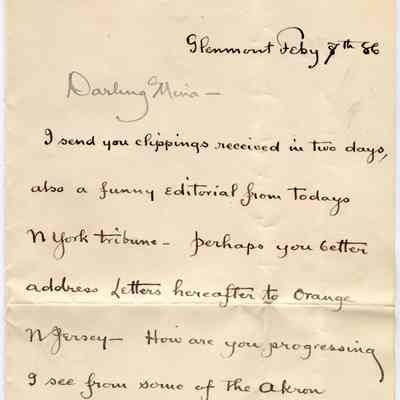 Glenmont Feby 8th 86
Darling Mina —
I send you clippings received in two days,
also a funny editorial from Todays
N York tribune — perhaps you better
address Letters hereafter to Orange
N Jersey — How are you progressing
I see from some of the Akron